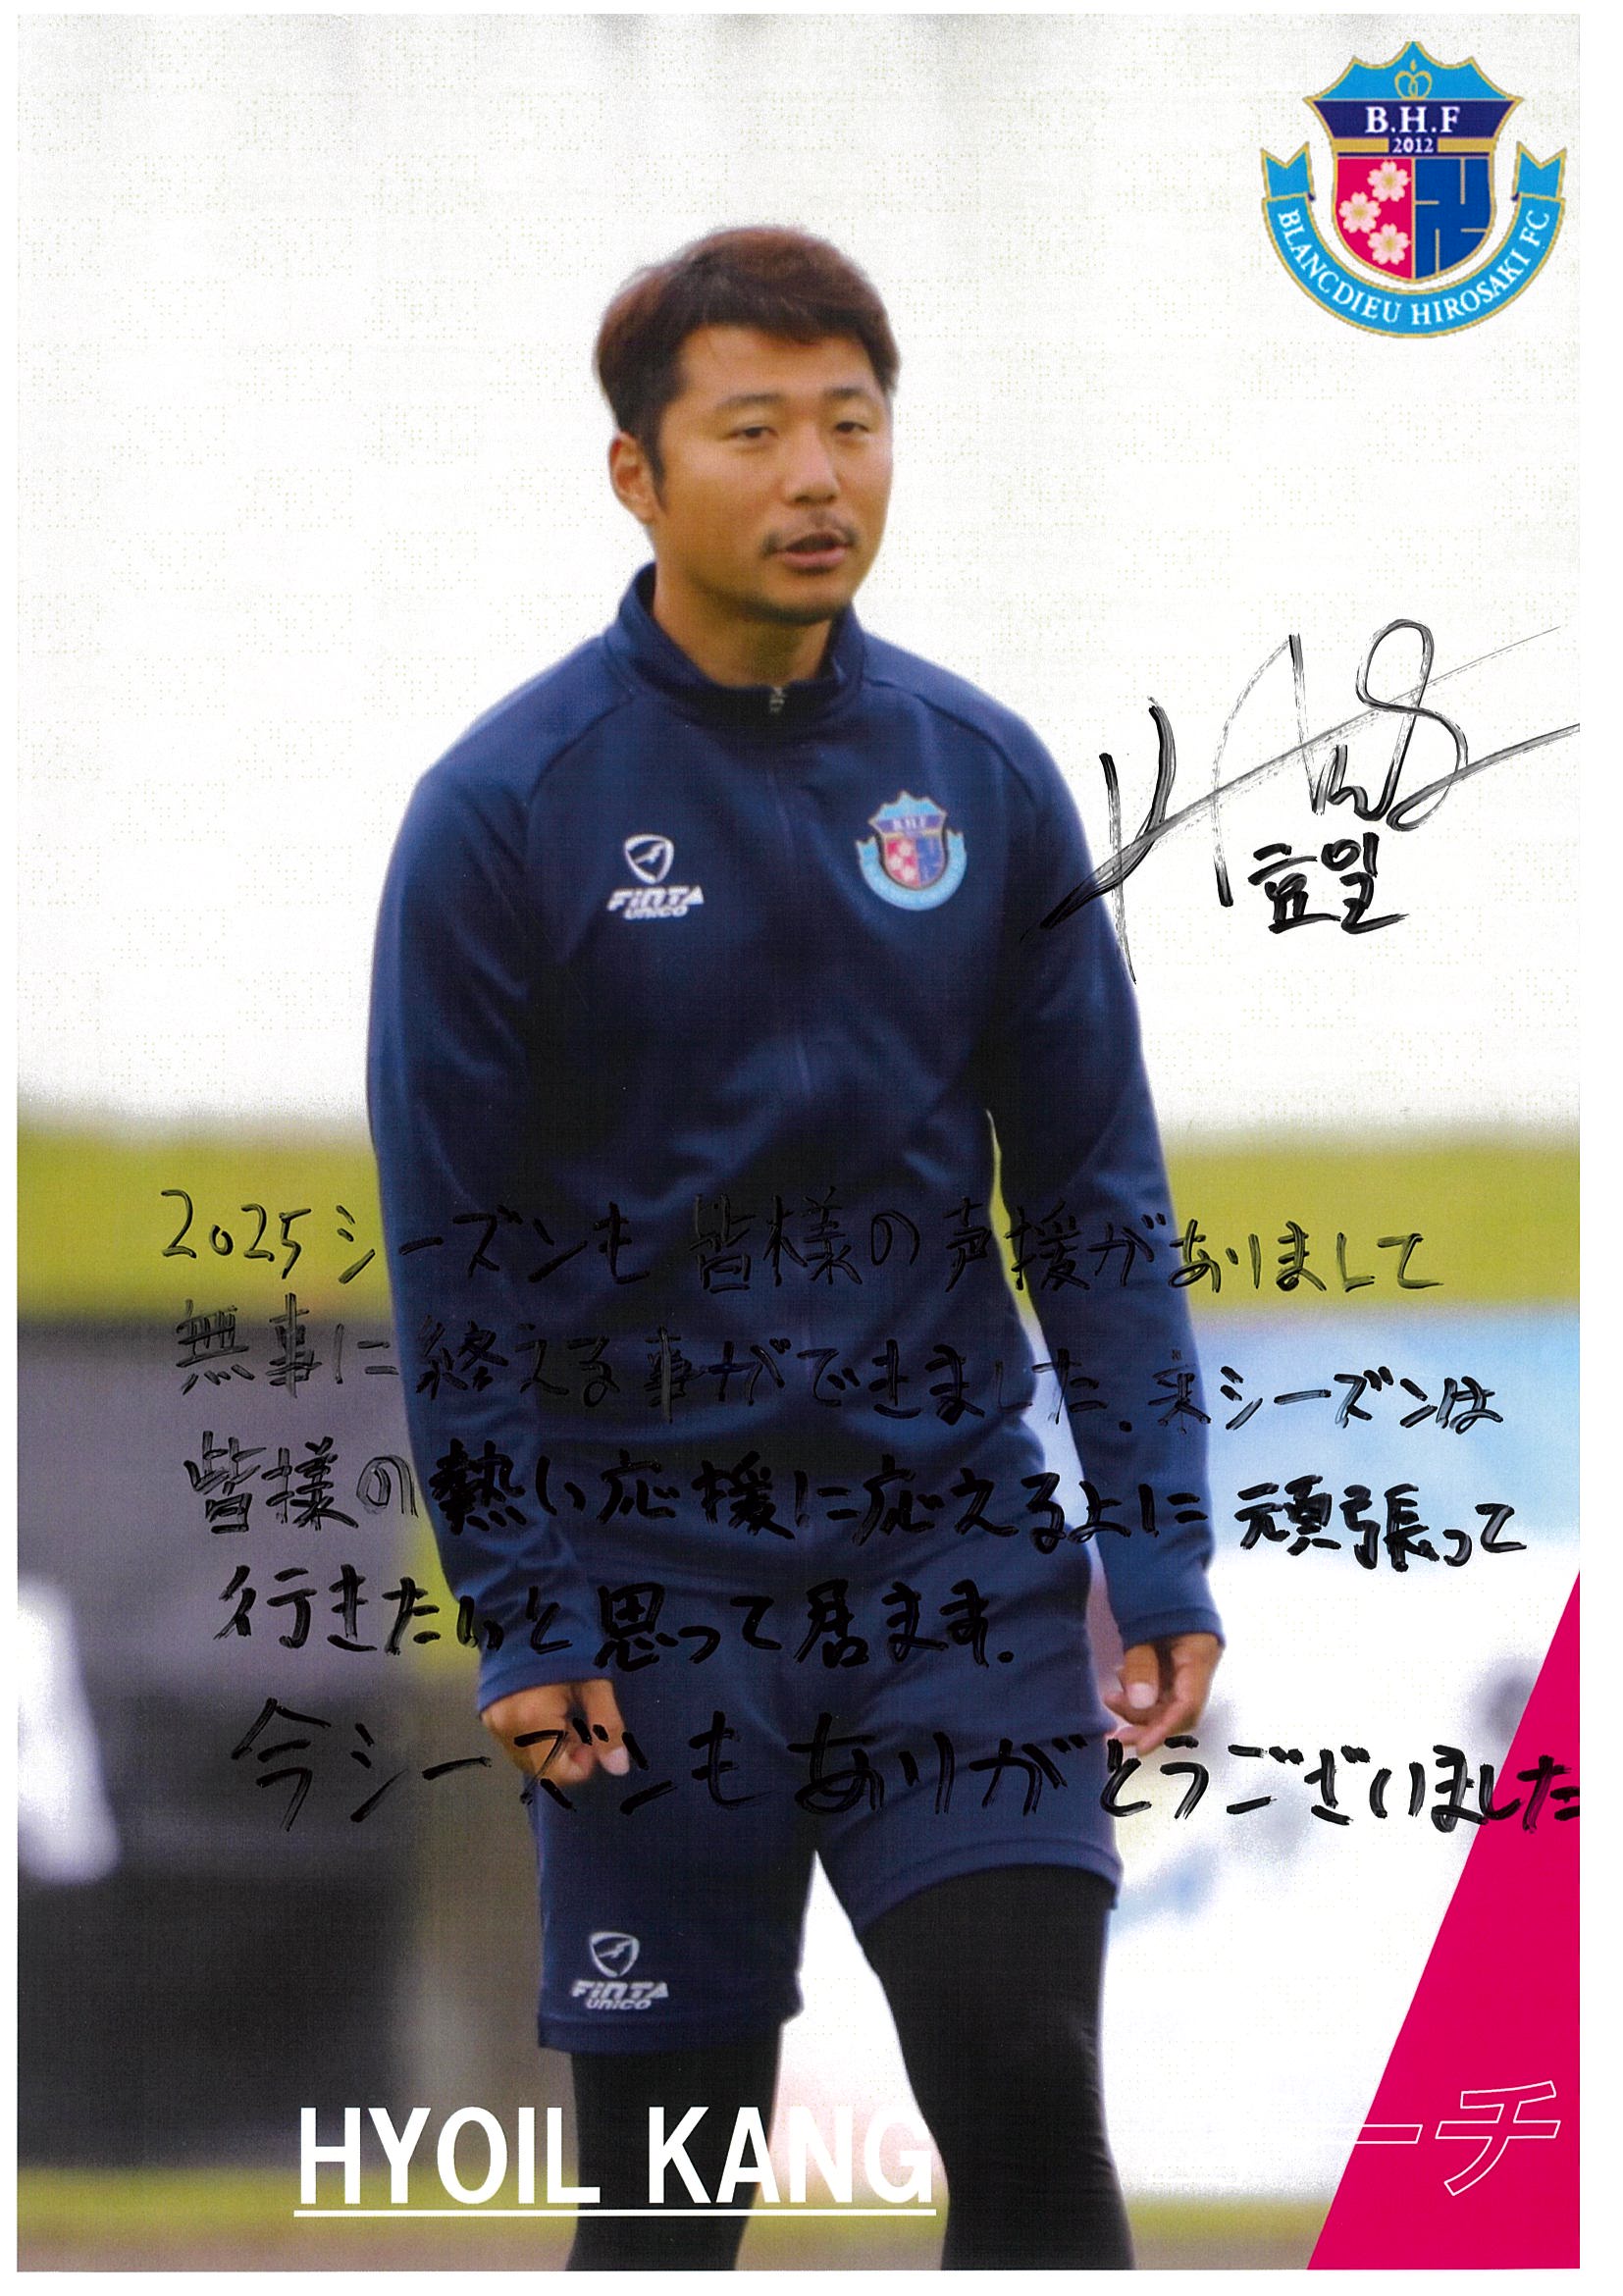 B.H.F
2012
BLANCDIEU HIROSAKI FC
B.H.F
FINTA
UNICO
효일
2025シーズンも 皆様の声援がありまして
無事に終える事ができました.来シーズンは
皆様の熱い応援に応えるよに頑張って
行きたいと思って居ます.
今シーズンもありがとうございました
FINTA
UNICO
HYOIL KANG
ーチ